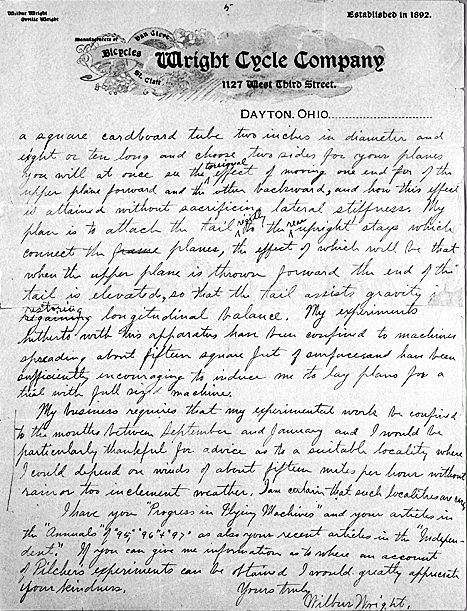 Wilbur Wright
Orville Wright
5
Established in 1892.
Manufacturers of
Bicycles
Van Cleve
St. Clair
Wright Cycle Company
1127 West Third Street.
DAYTON, OHIO
a square cardboard tube two inches in diameter and
eight or ten long and choose two sides for your planes
you will at once see the torsional effect of moving one end of the
upper plane forward and the other backward, and how this effect
is attained without sacrificing lateral stiffness. My
plan is to attach the tail rigidly to the rear upright stays which
connect the planes, the effect of which will be that
when the upper plane is thrown forward the end of the
tail is elevated, so that the tail assists gravity in
restoring longitudinal balance. My experiments
hitherto with this apparatus have been confined to machines
spreading about fifteen square feet of surface and have been
sufficiently encouraging to induce me to lay plans for a
trial with full sized machine.
My business requires that my experimental work be confined
to the months between September and January and I would be
particularly thankful for advice as to a suitable locality where
I could depend on winds of about fifteen miles per hour without
rain or too inclement weather. I am certain that such localities are rare
I have your "Progress in Flying Machines" and your articles in
the "Annuals" of '95, '96 & '97 as also your recent articles in the "Indepen-
dent". If you can give me information as to where an account
of Pilcher's experiments can be obtained I would greatly appreciate
your kindness.
Yours truly
Wilbur Wright.